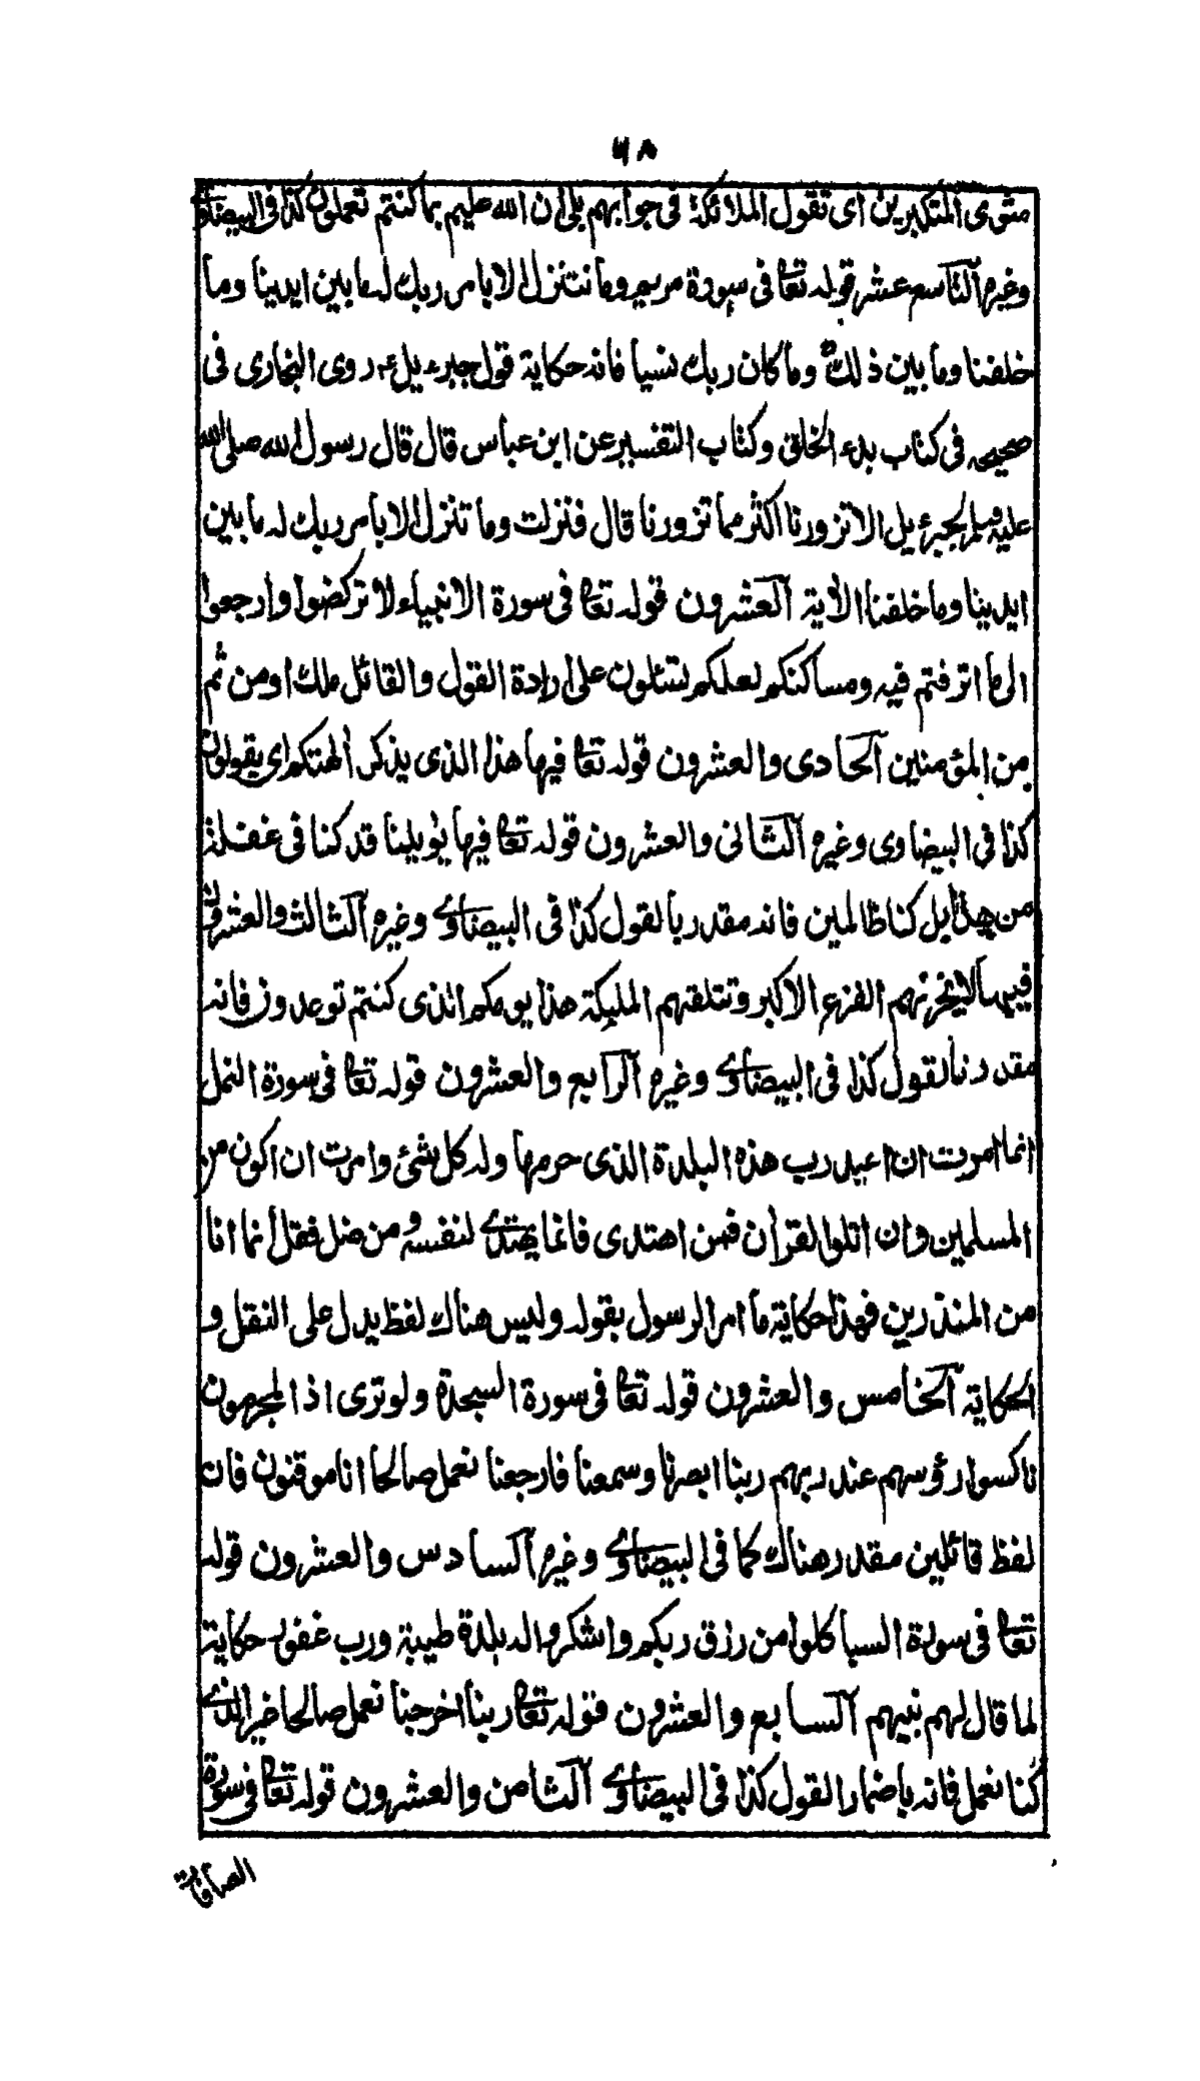 ٦٨
مثوى المتكبرين اى تقول الملائكة فى جوابهم بلى ان الله عليم بما كنتم تعملون كذا فى البيضاوى
وغيره التاسع عشر قوله تعا فى سورة مريم وما نتنزل الا بامر ربك له ما بين ايدينا وما
خلفنا وما بين ذلك وما كان ربك نسيا فانه حكاية قول جبرءيل روى البخارى فى
صحيحه فى كتاب بدء الخلق وكتاب التفسير عن ابن عباس قال قال رسول الله صلى الله
عليه وسلم لجبرئيل الا تزورنا اكثر مما تزورنا قال فنزلت وما نتنزل الا بامر ربك له ما بين
ايدينا وما خلفنا الاية العشرون قوله تعا فى سورة الانبياء لا تركضوا وارجعوا
الى ما اترفتم فيه ومساكنكم لعلكم تسئلون على ارادة القول والقائل ملك او من ثم
من المؤمنين الحادى والعشرون قوله تعا فيها هذا الذى يذكر الهتكم اى يقولون
كذا فى البيضاوى وغيره الثانى والعشرون قوله تعا فيها يويلنا قد كنا فى غفلة
من هذا بل كنا ظالمين فانه مقدر بالقول كذا فى البيضاوى وغيره الثالث والعشرون
فيها لا يحزنهم الفزع الاكبر وتتلقهم الملئكة هذا يومكم الذى كنتم توعدون فانه
مقدر بالقول كذا فى البيضاوى وغيره الرابع والعشرون قوله تعا فى سورة النمل
انما امرت ان اعبد رب هذه البلدة الذى حرمها وله كل شئ وامرت ان اكون من
المسلمين وان اتلوا القرآن فمن اهتدى فانما يهتدى لنفسه ومن ضل فقل انما انا
من المنذرين فهذا حكاية ما امر الرسول بقوله وليس هناك لفظ يدل على النقل و
الحكاية الخامس والعشرون قوله تعا فى سورة السجدة ولو ترى اذ المجرمون
ناكسوا رؤسهم عند ربهم ربنا ابصرنا وسمعنا فارجعنا نعمل صالحا انا موقنون فان
لفظ قائلين مقدر هناك كما فى البيضاوى وغيره السادس والعشرون قوله
تعا فى سورة السبا كلوا من رزق ربكم واشكروا له بلدة طيبة ورب غفور حكاية
لما قال لهم نبيهم السابع والعشرون قوله تعا ربنا اخرجنا نعمل صالحا غير الذى
كنا نعمل فانه باضمار القول كذا فى البيضاوى الثامن والعشرون قوله تعا فى سورة